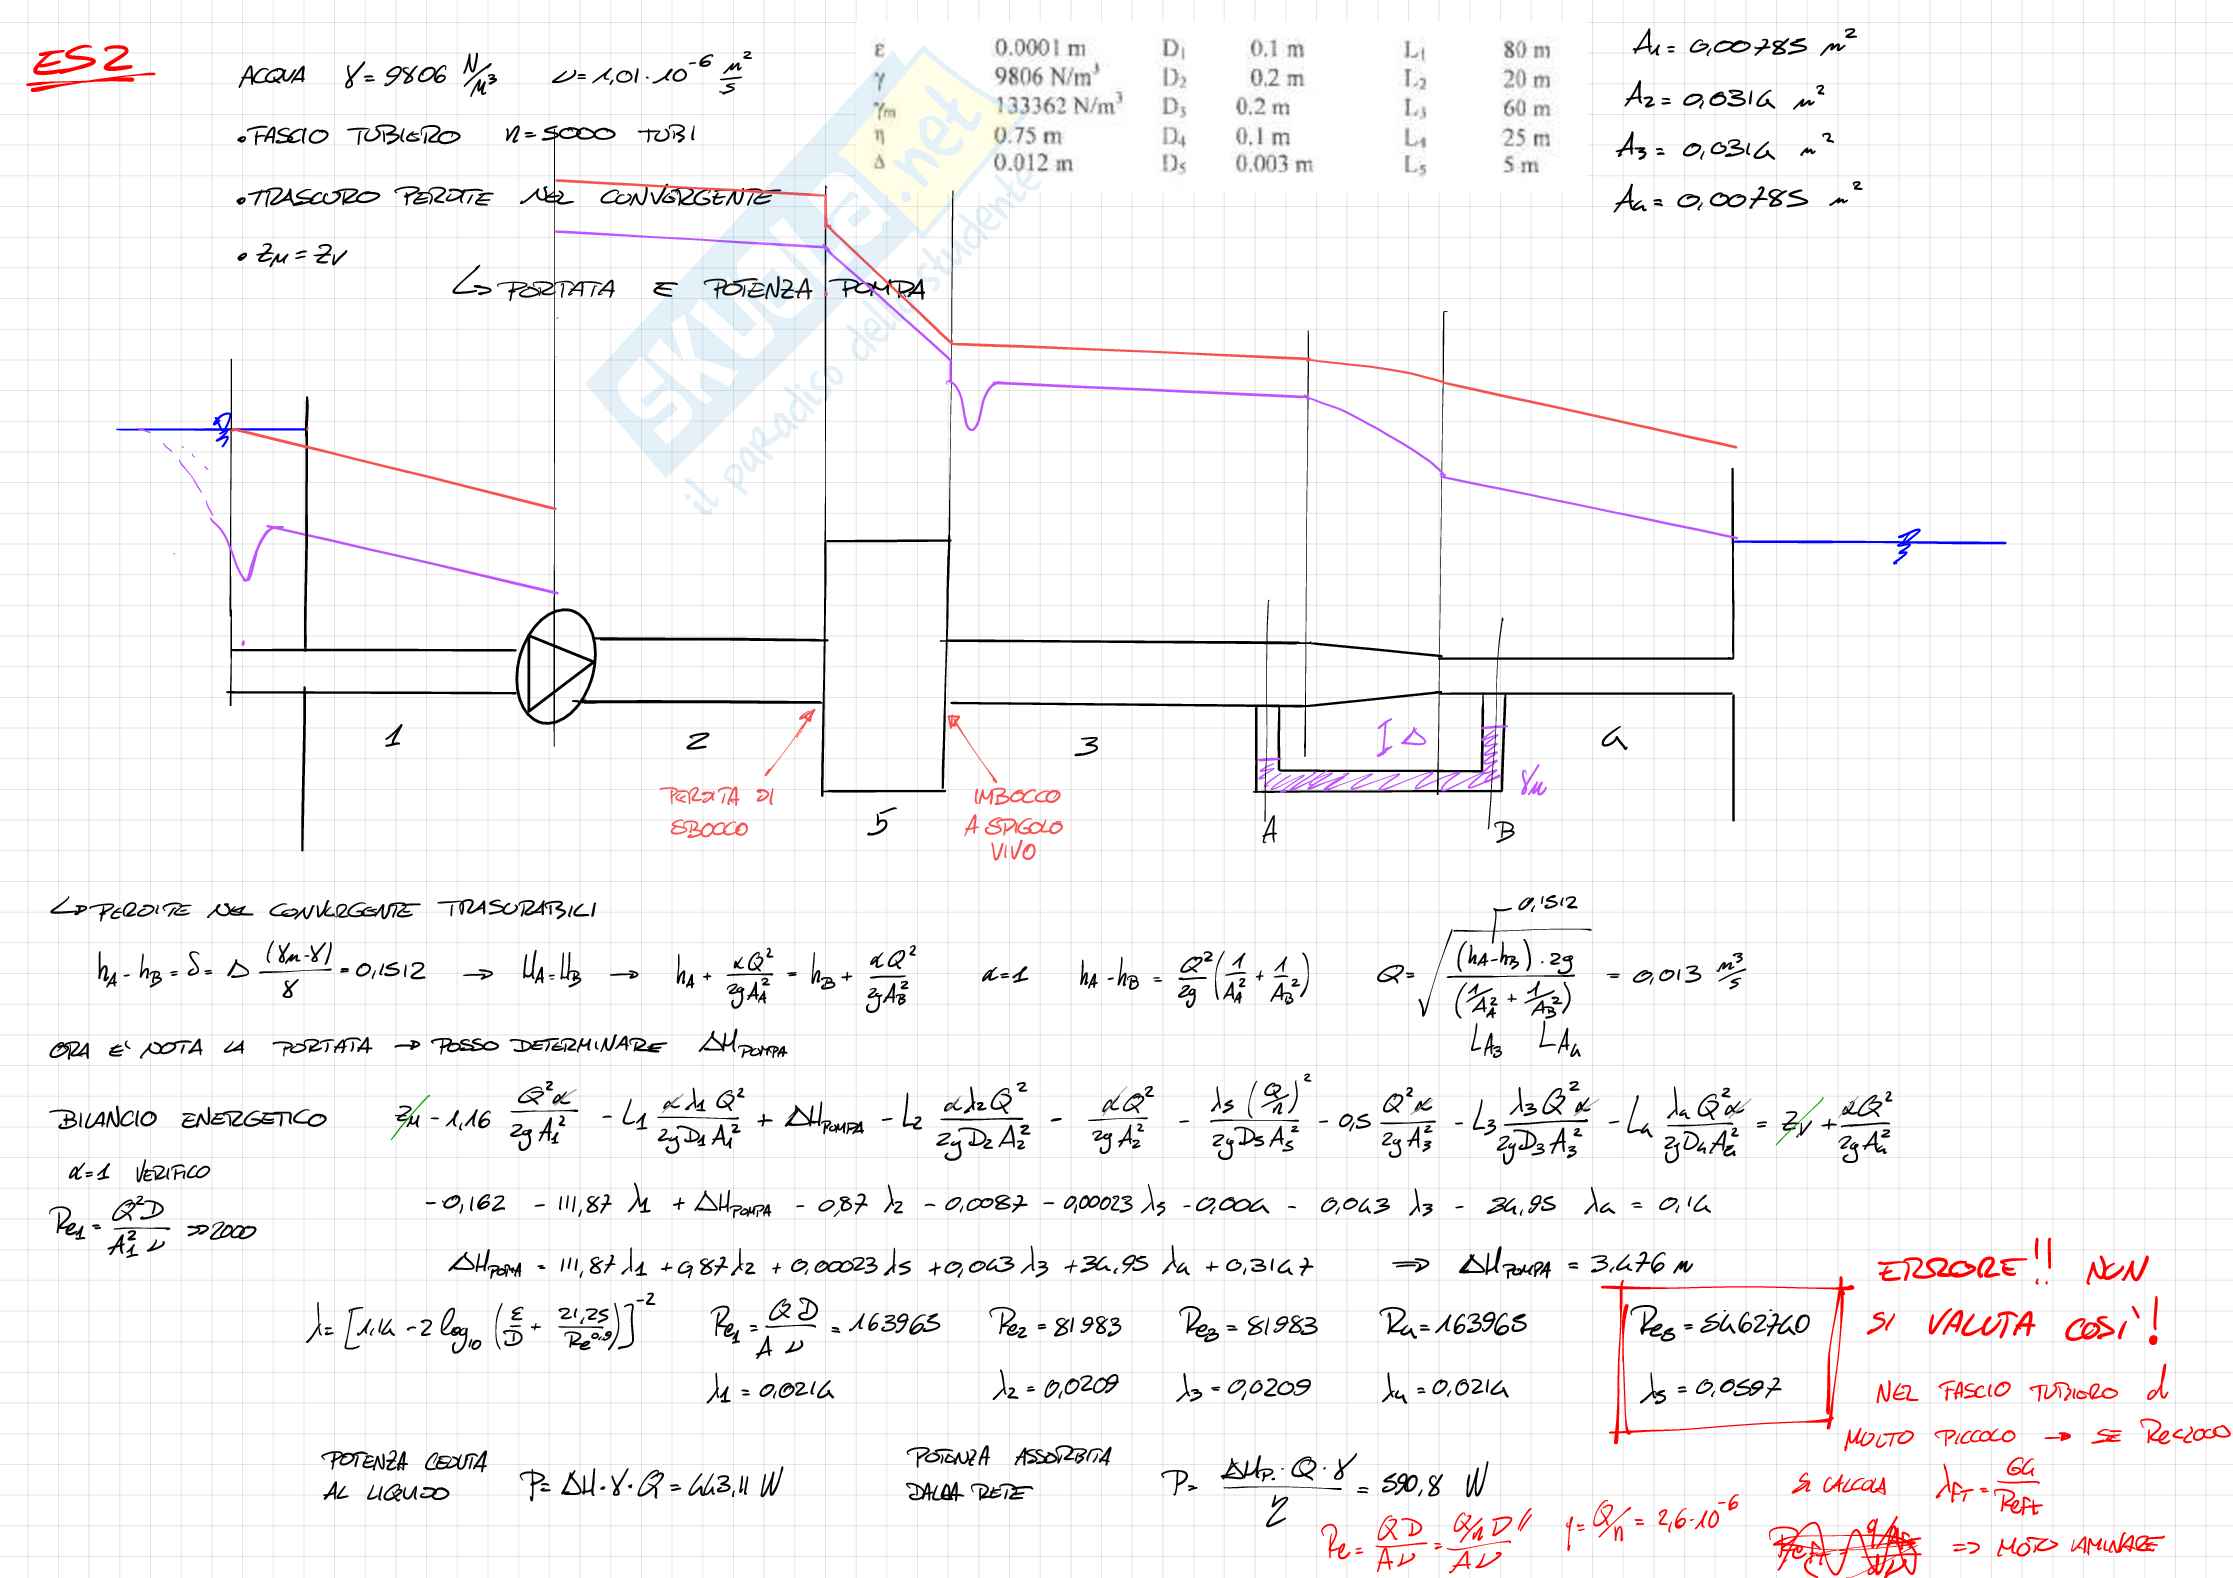 ES2
ACQUA γ = 9806 N/m³ ν = 1,01·10⁻⁶ m²/s
• FASCIO TUBIERO n = 5000 TUBI
• TRASCURO PERDITE NEL CONVERGENTE
• z_M = z_V
↳ PORTATA E POTENZA POMPA
ε 0.0001 m D₁ 0.1 m L₁ 80 m
γ 9806 N/m³ D₂ 0.2 m L₂ 20 m
γm 133362 N/m³ D₃ 0.2 m L₃ 60 m
η 0.75 m D₄ 0.1 m L₄ 25 m
Δ 0.012 m D₅ 0.003 m L₅ 5 m
A₁ = 0,00785 m²
A₂ = 0,0314 m²
A₃ = 0,0314 m²
A₄ = 0,00785 m²
SKUOLA.net
il paradiso dello studente
1
2
5
3
4
PERDITA DI
SBOCCO
IMBOCCO
A SPIGOLO
VIVO
Δ
γm
A
B
↳ PERDITE NEL CONVERGENTE TRASURABILI
h_A - h_B = δ = Δ (γm-γ)/γ = 0,1512 → H_A = H_B → h_A + αQ²/2gA_A² = h_B + αQ²/2gA_B² α=1 h_A - h_B = Q²/2g (1/A_A² + 1/A_B²) Q = √((h_A-h_B)·2g / (1/A_A² + 1/A_B²)) = 0,013 m³/s
0,1512
↳A₃ ↳A₄
ORA E' NOTA LA PORTATA → POSSO DETERMINARE ΔH_POMPA
BILANCIO ENERGETICO z_M - 1,16 Q²α/2gA₁² - L₁ αλ₁Q²/2gD₁A₁² + ΔH_POMPA - L₂ αλ₂Q²/2gD₂A₂² - αQ²/2gA₂² - λ₅(Q/n)²/2gD₅A₅² - 0,5 Q²α/2gA₃² - L₃ λ₃Q²α/2gD₃A₃² - L₄ λ₄Q²α/2gD₄A₄² = z_V + αQ²/2gA₄²
α=1 VERIFICO
Re₁ = Q²D/A₁²ν >>2000
-0,162 - 111,87 λ₁ + ΔH_POMPA - 0,87 λ₂ - 0,0087 - 0,00023 λ₅ - 0,004 - 0,043 λ₃ - 34,95 λ₄ = 0,14
ΔH_POMPA = 111,87 λ₁ + 0,87 λ₂ + 0,00023 λ₅ + 0,043 λ₃ + 34,95 λ₄ + 0,3147 ⇒ ΔH_POMPA = 3,476 m
λ = [1,14 - 2 log₁₀ (ε/D + 21,25/Re^0,9)]⁻² Re₁ = QD/Aν = 163965 Re₂ = 81983 Re₃ = 81983 R₄ = 163965 Re₅ = 5462740
λ₁ = 0,0214 λ₂ = 0,0209 λ₃ = 0,0209 λ₄ = 0,0214 λ₅ = 0,0597
ERRORE!! NON
SI VALUTA COSI'!
NEL FASCIO TUBIERO d
MOLTO PICCOLO → SE Re<2000
SI CALCOLA λ_FT = 64/Re_FT
⇒ MOTO LAMINARE
POTENZA CEDUTA
AL LIQUIDO P = ΔH·γ·Q = 443,11 W
POTENZA ASSORBITA
DALLA RETE P = ΔH_P·Q·γ/η = 590,8 W
Re = QD/Aν = Q/n D/Aν q = Q/n = 2,6·10⁻⁶